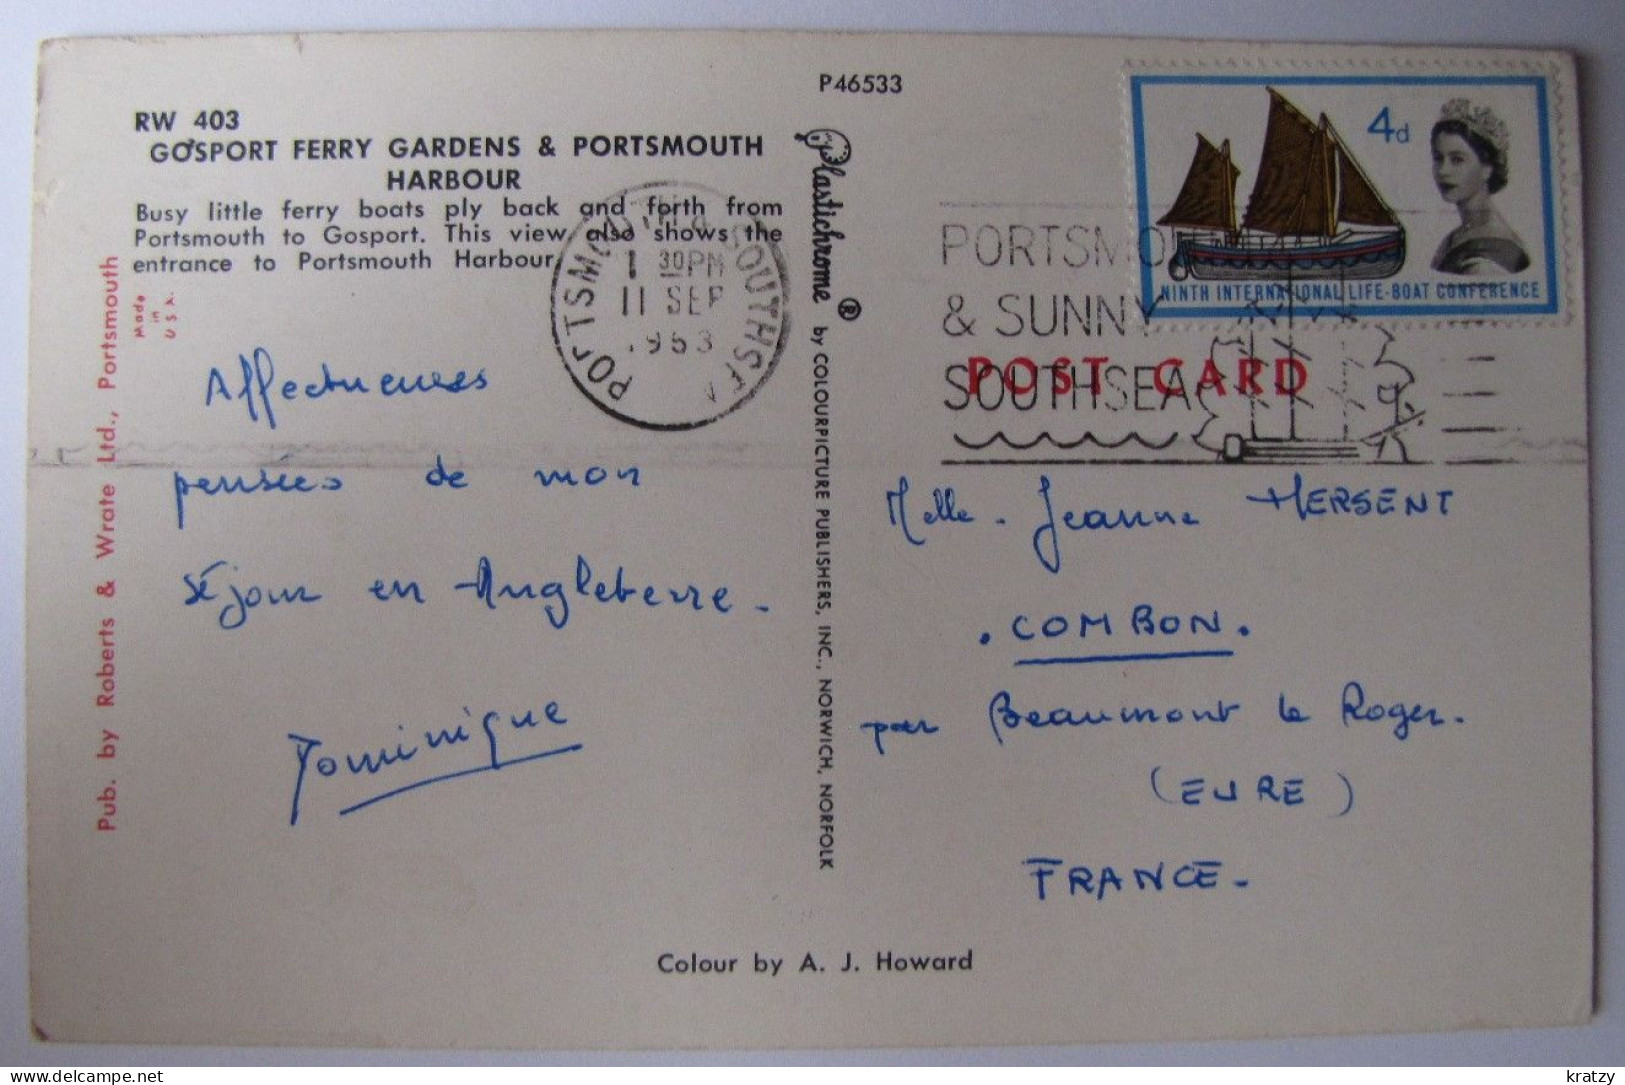 P46533
RW 403
GOSPORT FERRY GARDENS & PORTSMOUTH
HARBOUR
Busy little ferry boats ply back and forth from
Portsmouth to Gosport. This view also shows the
entrance to Portsmouth Harbour
Made
in
U.S.A.
Pub. by Roberts & Wrate Ltd., Portsmouth
PORTSMOUTH & SOUTHSEA
1 30PM
11 SEP
1963
Affectueuses
pensées de mon
séjour en Angleterre.
Dominique
Plastichrome ® by COLOURPICTURE PUBLISHERS, INC., NORWICH, NORFOLK
4d
NINTH INTERNATIONAL LIFE-BOAT CONFERENCE
PORTSMOUTH
& SUNNY
SOUTHSEA
POST CARD
Melle. Jeanne HERSENT
. COMBON.
par Beaumont le Roger.
(EURE)
FRANCE.
Colour by A. J. Howard
kratzy